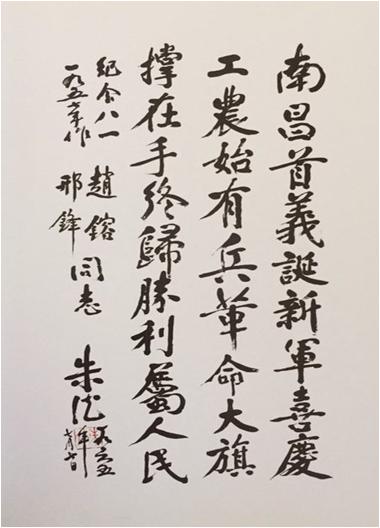 南昌首義誕新軍喜慶
工農始有兵革命大旗
撑在手終歸勝利屬人民
紀念八一
一九五七年作
趙鎔
邢鋒
同志
朱德
一九六五年